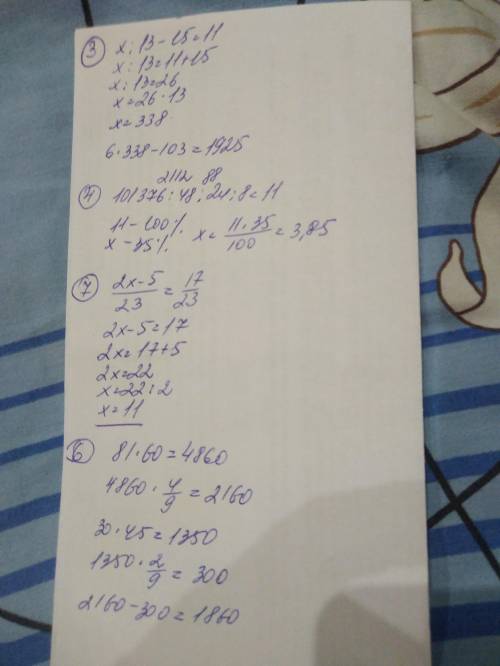 ③ x : 13 - 15 = 11
x : 13 = 11 + 15
x : 13 = 26
x = 26 · 13
x = 338
6 · 338 - 103 = 1925
2112 88
④ 101376 : 48 : 24 : 8 = 11
11 - 100%
x - 35% x = 11 · 35 / 100 = 3,85
⑦ 2x - 5 / 23 = 17 / 23
2x - 5 = 17
2x = 17 + 5
2x = 22
x = 22 : 2
x = 11
⑥ 81 · 60 = 4860
4860 · 4/9 = 2160
30 · 45 = 1350
1350 · 2/9 = 300
2160 - 300 = 1860